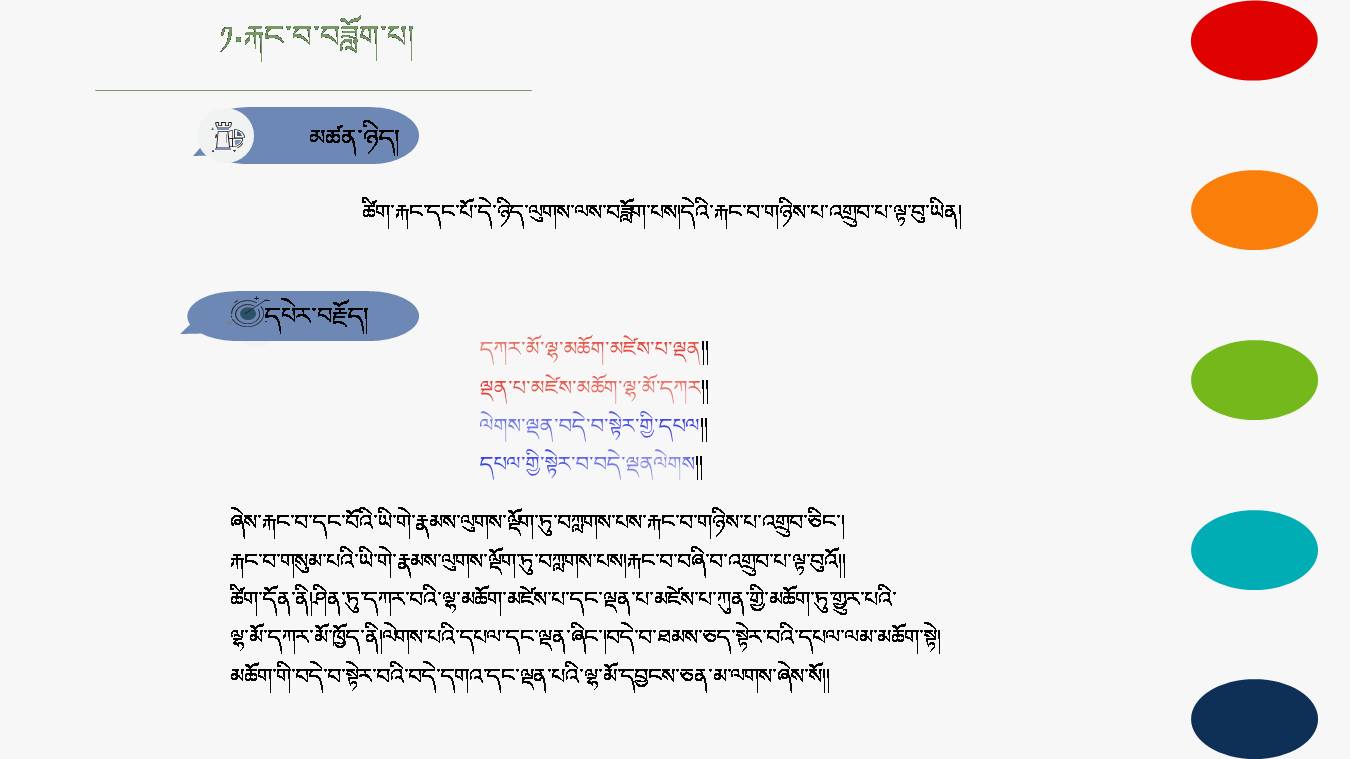 ༡.རྐང་བ་བཟློག་པ།
མཚན་ཉིད།
ཚིག་རྐང་དང་པོ་དེ་ཉིད་ལུགས་ལས་བཟློག་པས།དེའི་རྐང་བ་གཉིས་པ་འགྲུབ་པ་ལྟ་བུ་ཡིན།
དཔེར་བརྗོད།
དཀར་མོ་ལྷ་མཆོག་མཛེས་པ་ལྡན།།
ལྡན་པ་མཛེས་མཆོག་ལྷ་མོ་དཀར།།
ལེགས་ལྡན་བདེ་བ་སྟེར་གྱི་དཔལ།།
དཔལ་གྱི་སྟེར་བ་བདེ་ལྡནལེགས།།
ཞེས་རྐང་བ་དང་བོའི་ཡི་གེ་རྣམས་ལུགས་ལྡོག་ཏུ་བཀླགས་པས་རྐང་བ་གཉིས་པ་འགྲུབ་ཅིང་།
རྐང་བ་གསུམ་པའི་ཡི་གེ་རྣམས་ལུགས་ལྡོག་ཏུ་བཀླགས་པས།རྐང་བ་བཞི་བ་འགྲུབ་པ་ལྟ་བུའོ།།
ཚིག་དོན་ནི།ཤིན་ཏུ་དཀར་བའི་ལྷ་མཆོག་མཛེས་པ་དང་ལྡན་པ་མཛེས་པ་ཀུན་གྱི་མཆོག་ཏུ་གྱུར་པའི་
ལྷ་མོ་དཀར་མོ་ཁྱོད་ནི།ལེགས་པའི་དཔལ་དང་ལྡན་ཞིང་།བདེ་བ་ཐམས་ཅད་སྟེར་བའི་དཔལ་ལམ་མཆོག་སྟེ།
མཆོག་གི་བདེ་བ་སྟེར་བའི་བདེ་དགའ་དང་ལྡན་པའི་ལྷ་མོ་དབྱངས་ཅན་མ་ལགས་ཞེས་སོ།།